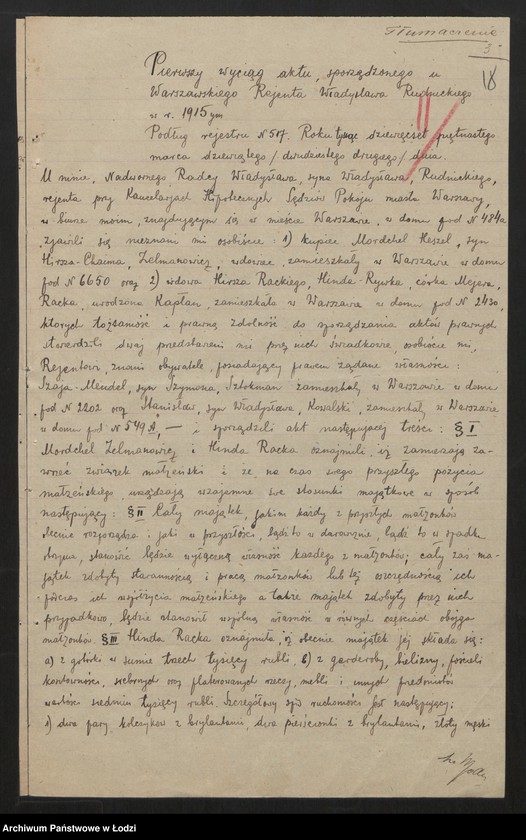 Tłumaczenie
3
18
Pierwszy wyciąg aktu, sporządzonego u
Warszawskiego Rejenta Władysława Rudnickiego
w r. 1915ym
Podług rejestru N 507. Roku tysiąc dziewięćset piętnastego
marca dziewiątego / dwudziestego drugiego / dnia.
U mnie, Nadwornego Radcy Władysława, syna Władysława, Rudnickiego,
rejenta przy Kancelarjach Hipotecznych Sędziów Pokoju miasta Warszawy,
w biurze moim, znajdującym się w mieście Warszawie, w domu pod N 484a
zjawili się nieznani mi osobiście: 1) kupiec Mordchel Heszel, syn
Hirsza-Chaima, Zelmanowicz, wdowiec, zamieszkały w Warszawie w domu
pod N 6650 oraz 2) wdowa Hirsza Rackiego, Hinda-Rywka, córka Mejera,
Racka, urodzona Kapłan, zamieszkała w Warszawie w domu pod N 2430,
których tożsamość i prawną zdolność do sporządzania aktów prawnych
stwierdzili dwaj przedstawieni mi przez nich świadkowie, osobiście mi,
Rejentowi, znani obywatele, posiadający prawem żądane własności:
Szaja-Mendel, syn Szymona, Sztokman zamieszkały w Warszawie w domu
pod N 2202 oraz Stanisław, syn Władysława, Kowalski, zamieszkały w Warszawie
w domu pod N 549 A, — i sporządzili akt następującej treści: § I
Mordchel Zelmanowicz i Hinda Racka oznajmili, iż zamierzają za-
wrzeć związek małżeński i że na czas swego przyszłego pożycia
małżeńskiego urządzają wzajemne swe stosunki majątkowe w sposób
następujący: § II Cały majątek, jakim każdy z przyszłych małżonków
obecnie rozporządza i jaki w przyszłości, bądź to w darowiźnie, bądź to w spadku
otrzyma, stanowić będzie wyłączną własność każdego z małżonków; cały zaś ma-
jątek zdobyty starannością i pracą małżonków lub też oszczędnością ich
podczas ich współżycia małżeńskiego a także majątek zdobyty przez nich
przypadkowo, będzie stanowił wspólną własność w równych częściach obojga
małżonków. § III Hinda Racka oznajmiła, iż obecnie majątek jej składa się:
a) z gotówki w sumie trzech tysięcy rubli, b) z garderoby, bielizny, pościeli
kosztowności, srebrnych oraz platerowanych rzeczy, mebli i innych przedmiotów
wartości siedmiu tysięcy rubli. Szczegółowy spis ruchomości jest następujący:
1) dwa pary kolczyków z brylantami, dwa pierścionki z brylantami, złoty męski
Archiwum Państwowe w Łodzi